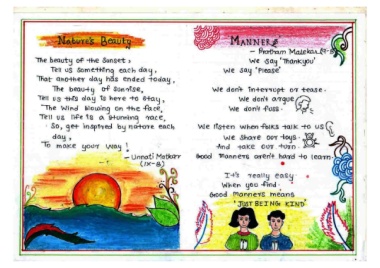 Nature's Beauty
The beauty of the Sunset:
Tell us something each day,
That another day has ended today,
The beauty of Sunrise,
Tell us this day is here to stay,
The Wind Blowing on the face,
Tell us life is a stunning race,
So, get inspired by nature each
day,
To make your way!
- Unnati Metkar
(IX-B)
MANNERS
- Pratham Malekar
We say 'Thankyou'
We say 'Please'
We don't interrupt or tease.
We don't argue
We don't fuss.
We listen when folks talk to us
We share our toys
And take our turn.
Good Manners aren't hard to learn.
It's really easy
When you find.
Good Manners means
'JUST BEING KIND'